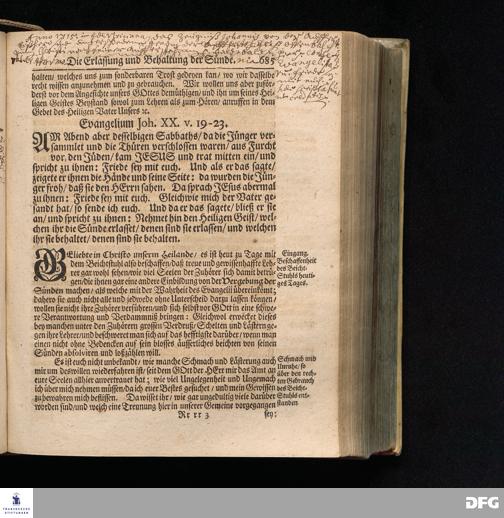 Die Erlassung und Behaltung der Sünde. 685
halten/ welches uns zum sonderbaren Trost gedeyen kan/ wo wir dasselbe
recht wissen anzunehmen und zu gebrauchen. Wir wollen uns aber zuför-
derst vor dem Angesichte unsers GOttes demüthigen/ und ihn um seines Hei-
ligen Geistes Beystand sowol zum Lehren als zum Hören/ anruffen in dem
Gebet des Heiligen Vater Unsers ꝛc.
Evangelium Joh. XX. v. 19-23.
AM Abend aber desselbigen Sabbaths/ da die Jünger ver-
sammlet und die Thüren verschlossen waren/ aus Furcht
vor den Jüden/ kam JESUS und trat mitten ein/ und
spricht zu ihnen: Friede sey mit euch. Und als er das sagte/
zeigete er ihnen die Hände und seine Seite: da wurden die Jün-
ger froh/ daß sie den HErrn sahen. Da sprach JEsus abermal
zu ihnen: Friede sey mit euch. Gleichwie mich der Vater ge-
sandt hat/ so sende ich euch. Und da er das sagete/ bließ er sie
an/ und spricht zu ihnen: Nehmet hin den Heiligen Geist/ wel-
chen ihr die Sünde erlasset/ denen sind sie erlassen/ und welchen
ihr sie behaltet/ denen sind sie behalten.
GEliebte in Christo unserm Heilande/ es ist heut zu Tage mit
dem Beichtstuhl also beschaffen/ daß treue und gewissenhaffte Leh-
rer gar wohl sehen/ wie viel Seelen der Zuhörer sich damit betrie-
gen/ die ihnen gar eine andere Einbildung von der Vergebung der
Sünden machen/ als welche mit der Wahrheit des Evangelii übereinkömt;
dahero sie auch nicht alle und jedwede ohne Unterscheid darzu lassen können/
wollen sie nicht ihre Zuhörer verführen/ und sich selbst vor GOtt in eine schwe-
re Verantwortung und Verdammniß bringen: Gleichwol erwecket dieses
bey manchen unter den Zuhörern grossen Verdruß/ Schelten und Lästern ge-
gen ihre Lehrer/ und beschweret man sich auf das hefftigste darüber/ wenn man
einen nicht ohne Bedencken auf sein blosses äusserliches beichten von seinen
Sünden absolviren und loßzählen will.
Eingang.
Beschaffenheit
des Beicht-
Stuhls heuti-
ges Tages.
Es ist euch nicht unbekandt/ wie manche Schmach und Lästerung auch
mir um deswillen wiederfahren ist/ seit dem GOtt der HErr mir das Amt an
eure Seelen allhier anvertrauet hat; wie viel Ungelegenheit und Ungemach
ich über mich nehmen müssen da ich eurer Bestes gesuchet/ und mein Gewissen
zu bewahren mich beflissen. Da wisset ihr/ wie gar ungedultig viele darüber
worden sind/ und welch eine Trennung hier in unserer Gemeine vorgegangen
Schmach und
Unruhe/ so
über den rech-
ten Gebrauch
des Beicht-
Stuhls ent-
standen
Rr rr 3 sey:
FRANCKESCHE
STIFTUNGEN
DFG